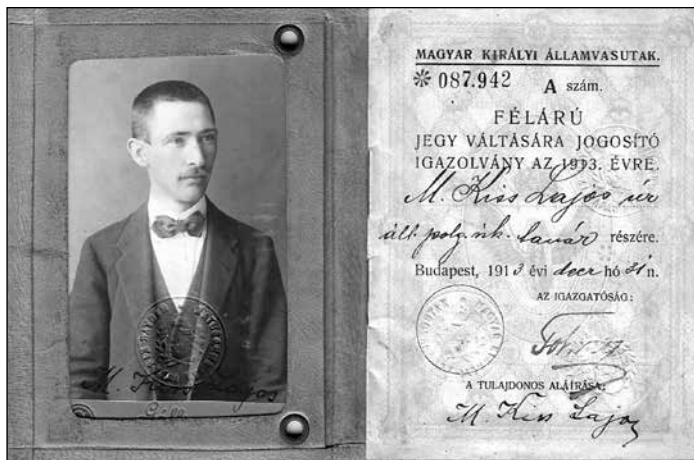 M. Kiss Lajos
MAGYAR KIRÁLYI ÁLLAMVASUTAK.
* 087.942 A szám.
FÉLÁRÚ
JEGY VÁLTÁSÁRA JOGOSÍTÓ
IGAZOLVÁNY AZ 1913. ÉVRE.
M. Kiss Lajos úr
áll. polg. isk. tanár részére.
Budapest, 1913 évi decz hó 31 n.
AZ IGAZGATÓSÁG:
A TULAJDONOS ALÁÍRÁSA:
M. Kiss Lajos